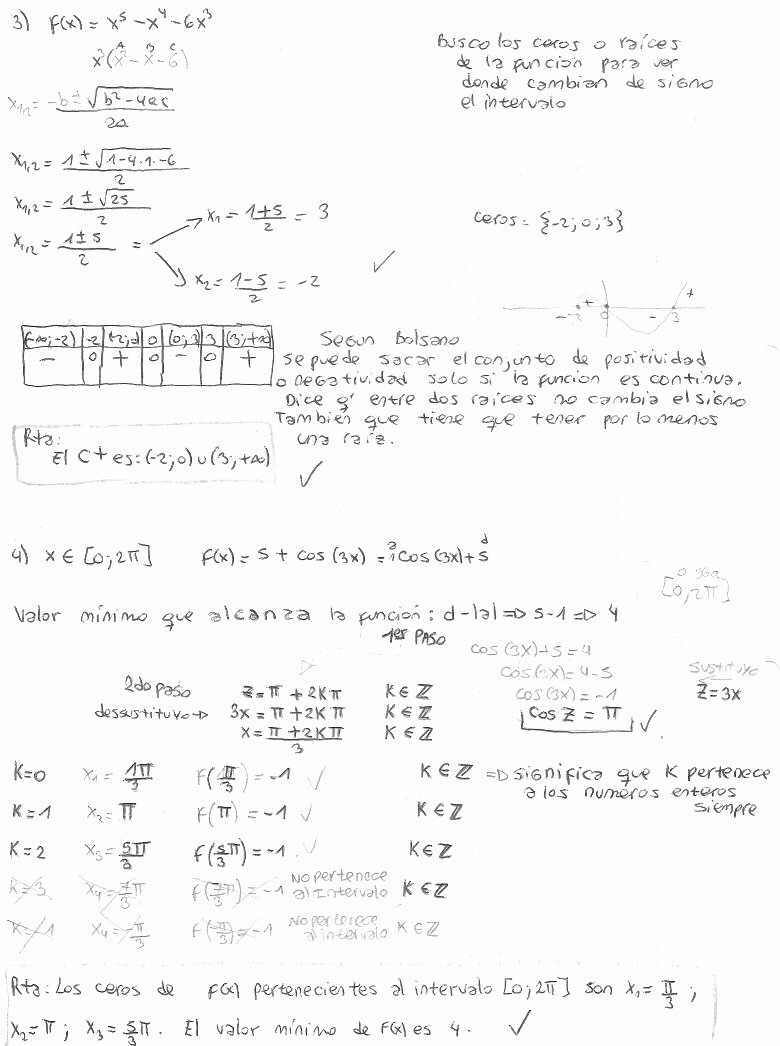 3) F(x) = x⁵ - x⁴ - 6x³
x³(x² - x - 6)
A B C
Busco los ceros o raíces
de la función para ver
donde cambian de signo
el intervalo
x₁,₂ = -b ± √b² - 4ac / 2a
x₁,₂ = 1 ± √1-4·1·-6 / 2
x₁,₂ = 1 ± √25 / 2
x₁,₂ = 1 ± 5 / 2 =
x₁ = 1+5/2 = 3
x₂ = 1-5/2 = -2 ✓
ceros = {-2; 0; 3}
- -2 + 0 - 3 +
(-∞; -2) | -2 | | 0 | | 3 | (3; +∞)
- | 0 | + | 0 | - | 0 | +
Segun Bolsano
se puede sacar el conjunto de positividad
o negatividad solo si la funcion es continua.
Dice q' entre dos raices no cambia el signo
También que tiene que tener por lo menos
una raiz.
Rta:
El C+ es: (-2; 0) ∪ (3; +∞) ✓
4) x ∈ [0; 2π] F(x) = 5 + cos (3x) = 1 cos (3x) + 5
a d
[0, 2π]
Valor mínimo que alcanza la función: d - |a| => 5-1 => 4
1er PASO
cos (3x) + 5 = 4
cos (3x) = 4-5
cos (3x) = -1
cos Z = π ✓
sustituyo
Z = 3x
2do paso Z = π + 2Kπ K ∈ ℤ
dessustituyo => 3x = π + 2Kπ K ∈ ℤ
x = π + 2Kπ / 3 K ∈ ℤ
K=0 x₁ = 1π/3 F(π/3) = -1 ✓ K ∈ ℤ => significa que K pertenece
a los numeros enteros
siempre
K=1 x₂ = π F(π) = -1 ✓ K ∈ ℤ
K=2 x₃ = 5π/3 F(5/3 π) = -1 ✓ K ∈ ℤ
K=3 x₄ = 7/3 π F(7/3 π) = -1 No pertenece al Intervalo K ∈ ℤ
K=-1 x₄ = -π/3 F(-π/3) = -1 No pertenece al intervalo K ∈ ℤ
Rta: Los ceros de F(x) pertenecientes al intervalo [0; 2π] son x₁ = π/3 ;
x₂ = π ; x₃ = 5/3 π. El valor mínimo de F(x) es 4. ✓